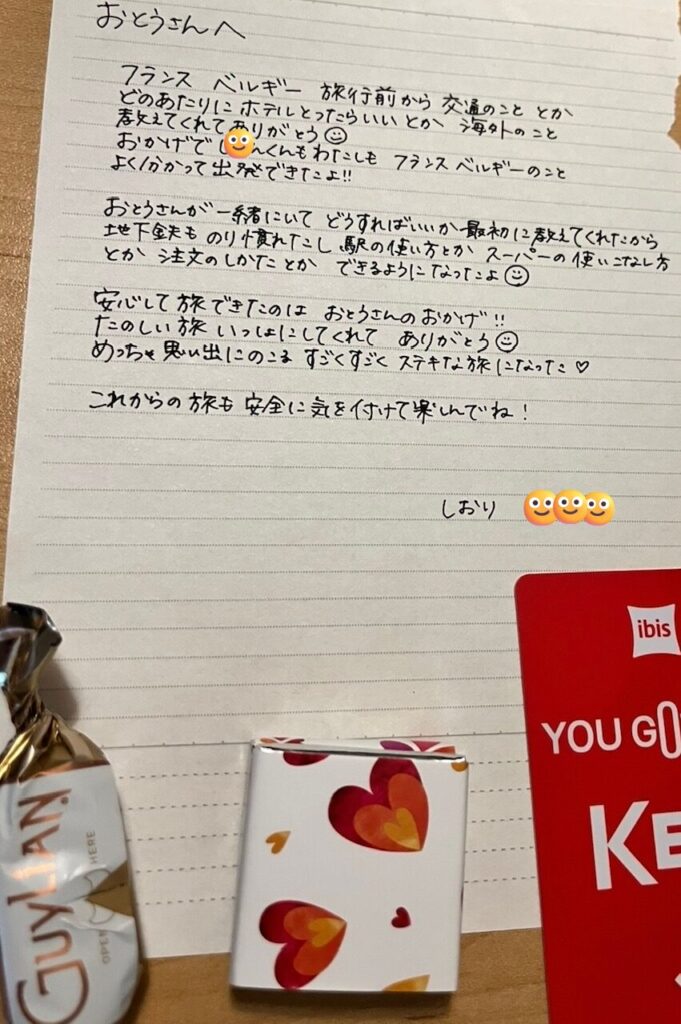 おとうさんへ
フランス ベルギー 旅行前から 交通のこと とか
どのあたりに ホテルとったらいい とか 海外のこと
教えてくれて ありがとう☺
おかげで んくんもわたしも フランス ベルギーのこと
よく分かって 出発できたよ!!
おとうさんが 一緒にいて どうすればいいか 最初に 教えてくれたから
地下鉄も のり慣れたし 駅の使い方とか スーパーの使いこなし方
とか 注文のしかた とか できるように なったよ☺
安心して 旅できたのは おとうさんの おかげ!!
たのしい旅 いっしょにしてくれて ありがとう☺
めっちゃ 思い出にのこる すごくすごく ステキな旅になった♡
これからの旅も 安全に 気を付けて 楽しんでね!
しおり
GUYLIAN
OPEN HERE
ibis
YOU GO
KE